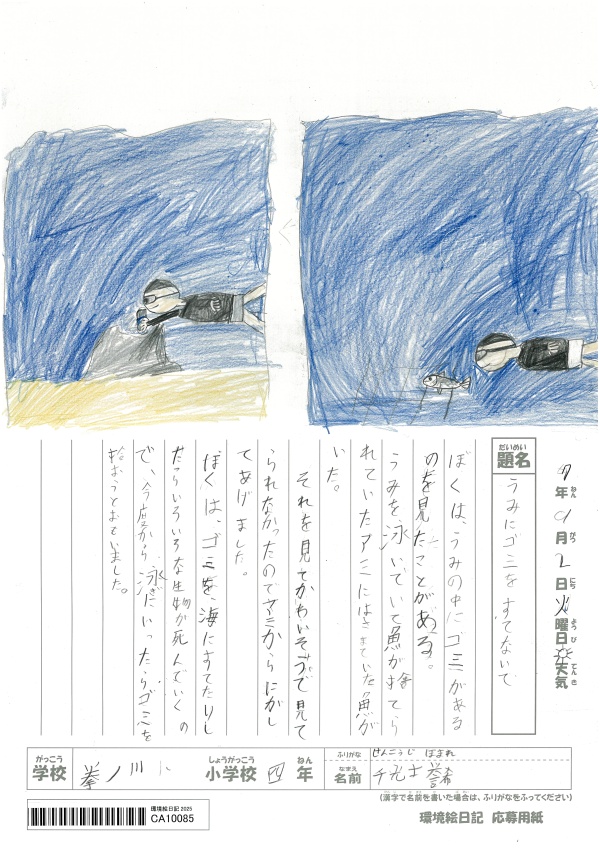 年 月 日 火曜日 天気
ねん がつ にち ようび てんき
だいめい
題名
うみにゴミを すてないで
ぼくは、うみの中にゴミがある
のを見たことがある。
うみを泳いていて魚が捨てら
れていたアミにはさまていた魚が
いた。
それを見てかわいそうで見て
られなかったのでアミからにがし
てあげました。
ぼくは、ゴミを海にすてたりし
たらいろいろな生物が死んでいくの
で、今度から泳ぎにいったらゴミを
拾おうとおていました。
がっこう
学校
拳ノ川
しょうがっこう
小学校
四
ねん
年
ふりがな
せんこうじ ほまれ
なまえ
名前
(漢字で名前を書いた場合は、ふりがなをふってください)
環境絵日記 2025
CA10085
環境絵日記 応募用紙